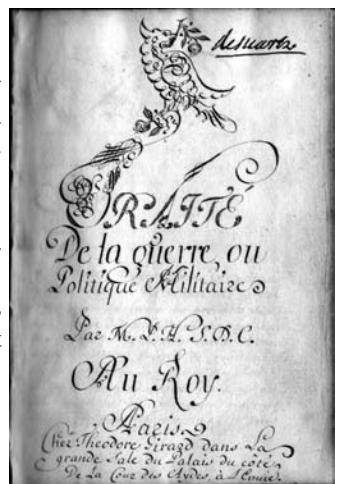 TRAITÉ
De la guerre, ou
Politique Militaire
Par M. P. H. S. D. C.
Au Roy.
A Paris
Chez Theodore Girard dans La
grande Sale du Palais du côté
De La Cour des Aydes, à l'Envie.